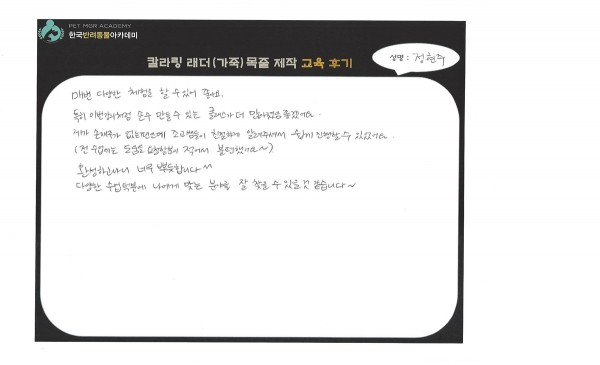 PET MGR ACADEMY
한국반려동물아카데미
칼라링 래더(가죽)목줄 제작 교육 후기
성명 : 정현주
매번 다양한 체험을 할 수 있어 좋아요.
특히 이번강의처럼 손수 만들 수 있는 클래스가 더 많아졌으면 좋겠어요.
제가 손재주가 없는편인데 조교쌤들이 친절하게 알려주셔서 쉽게 진행할 수 있었어요.
(전 수업에는 도움을 요청할분이 적어서 불편했어요~)
완성하고나니 너무 뿌듯합니다~
다양한 수업덕분에 나에게 맞는 분야를 잘 찾을 수 있을것 같습니다~